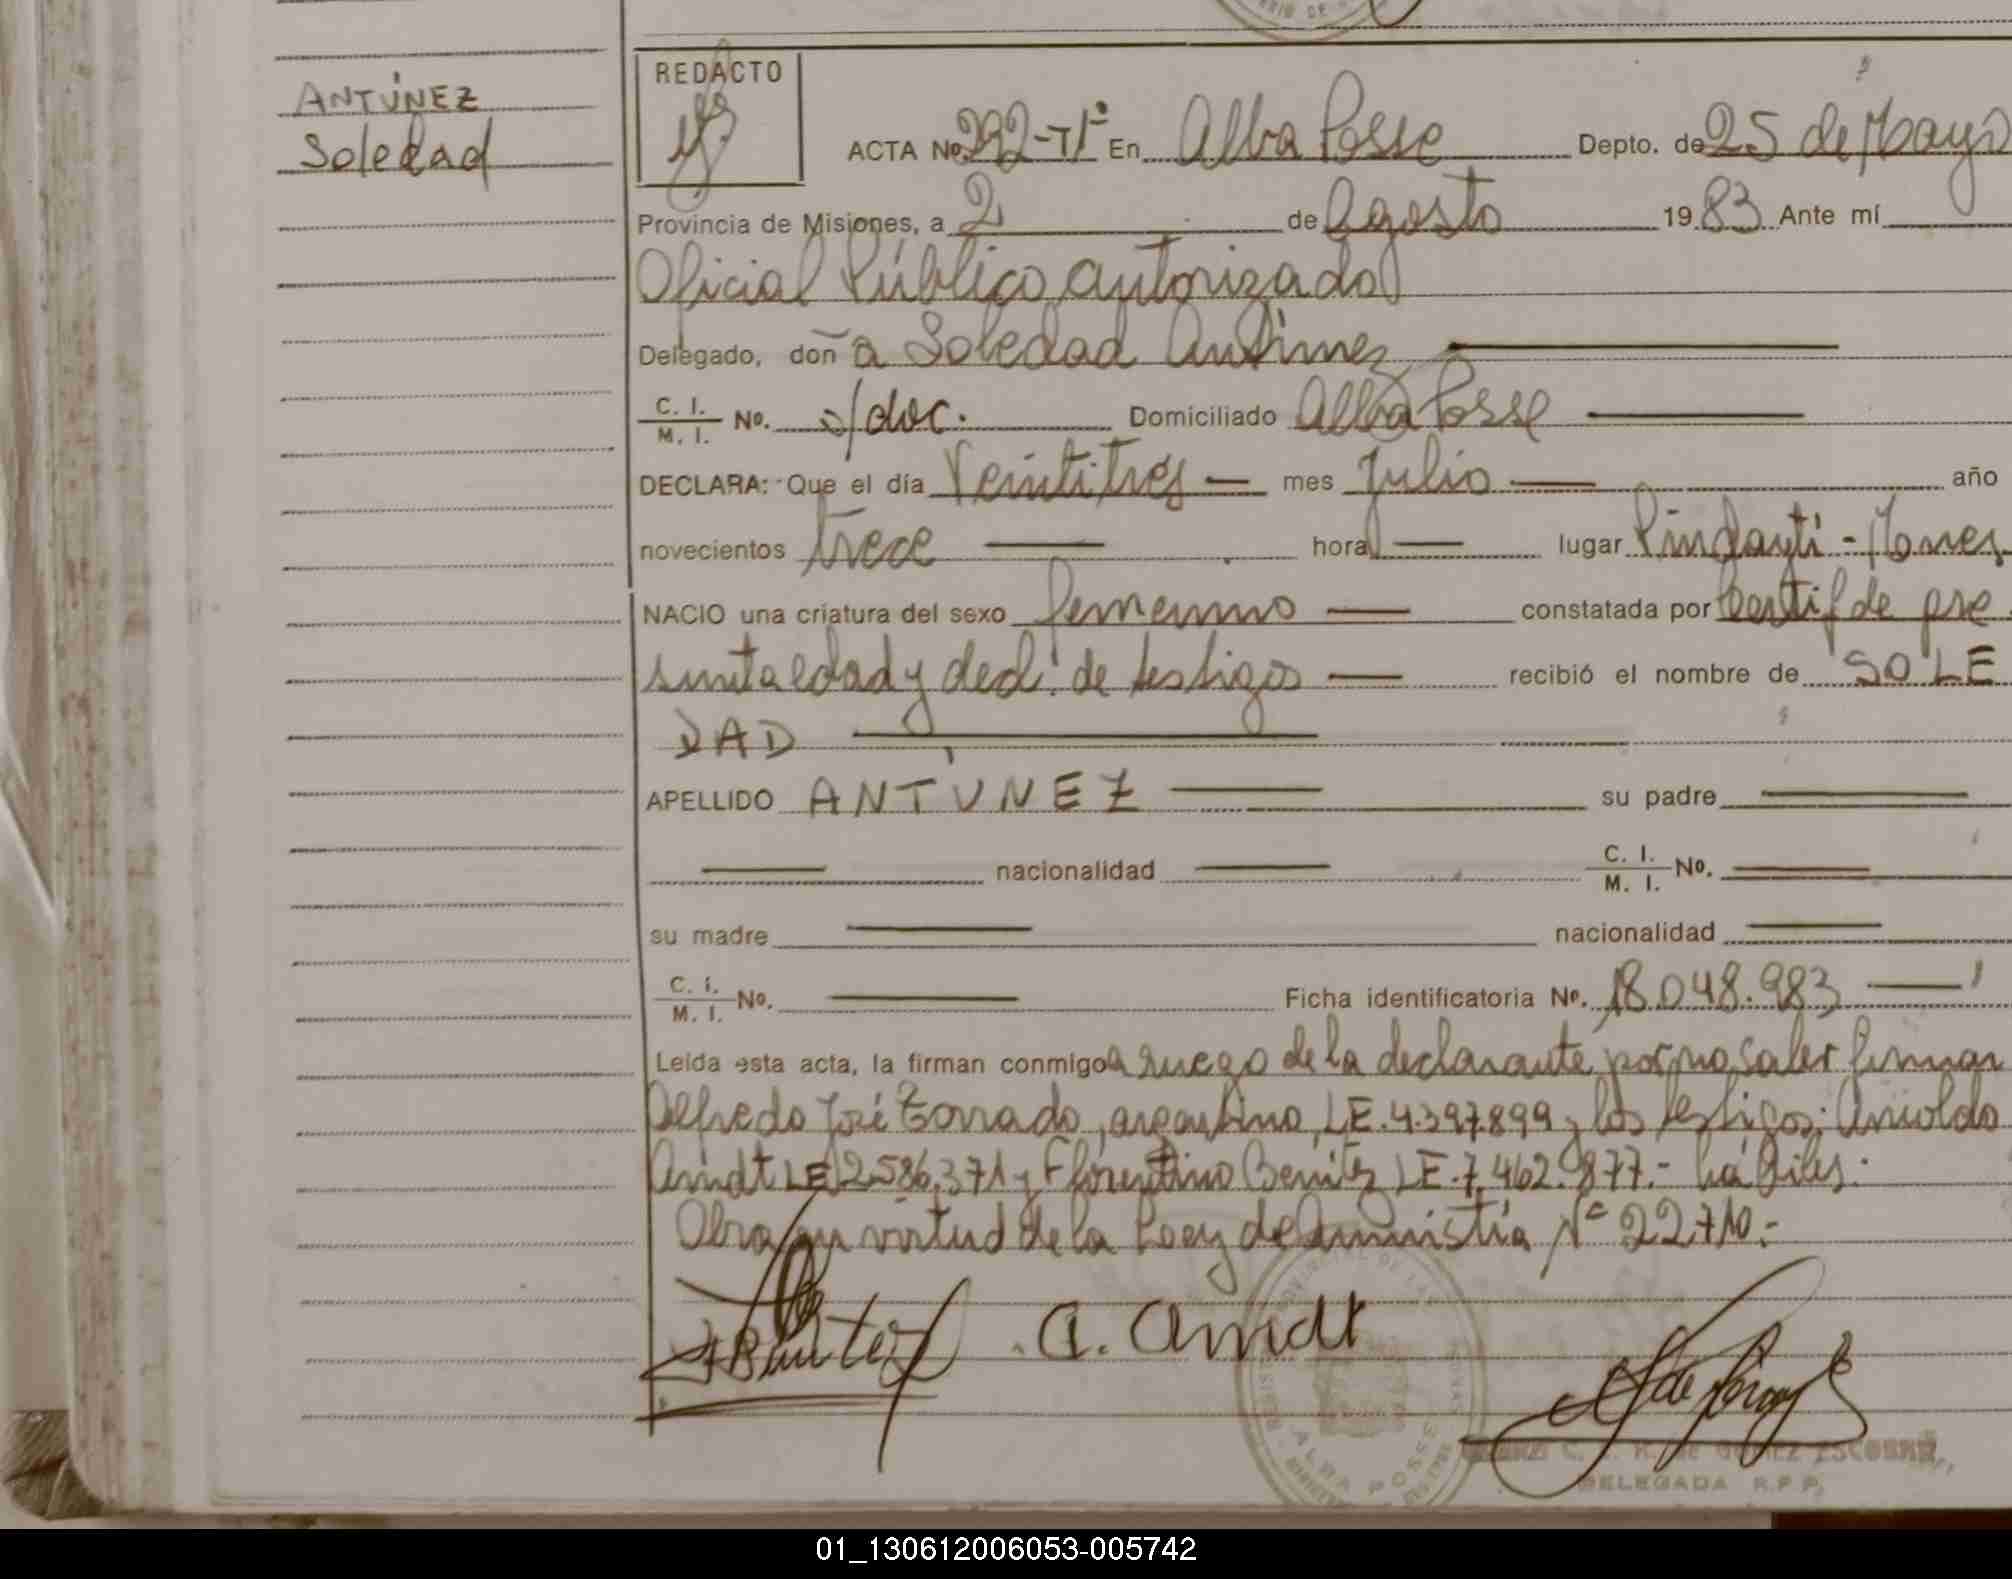 ANTÚNEZ
Soledad
REDACTO
ACTA No. 292-Tº1º En Alba Posse Depto. de 25 de Mayo
Provincia de Misiones, a 2 de Agosto 1983 Ante mí
Oficial Público autorizado
Delegado, doña Soledad Antúnez
C. I. M. I. No. s/doc. Domiciliado Alba Posse
DECLARA: Que el día Veintitrés mes Julio año
novecientos trece hora lugar Pindayti - Mones
NACIO una criatura del sexo femenino constatada por Certif de pre
sunta edad y decl. de testigos recibió el nombre de SOLE
DAD
APELLIDO ANTÚNEZ su padre
nacionalidad C. I. M. I. No.
su madre nacionalidad
C. I. M. I. No. Ficha identificatoria No. 18.048.983
Leída esta acta, la firman conmigo a ruego de la declarante por no saber firmar
Alfredo José Zorrado, argentino, LE. 4.397.899 y los testigos: Arnoldo
Arndt LE 2.586.371 y Florentino Benitez LE. 7.462.877.- hábiles.
Obra en virtud de la Ley de Amnistía Nº 22.710.-
A. Arndt
ALBA POSSE
DE GOMEZ ESCOBAR
DELEGADA R.P.P.
01_130612006053-005742